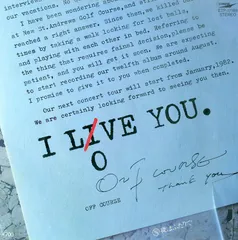 our vacations.
I have been wondering about
at New St.Andrews Golf Course, and
reached a right answer. Since then, we killed
times by taking a walk looking for lost balls,
and playing with each other in bed. Referring to
the thing that requires fainal decision, please be
patient, and you will get it soon. We are expecting
to start recording our twelfth album around august
I promise to give it to you when completed.
Our next concert tour will start from January, 1982.
We are certainly looking forward to seeing you then.
I LIVE YOU.
O
OFF COURSE
thank you
OFF COURSE